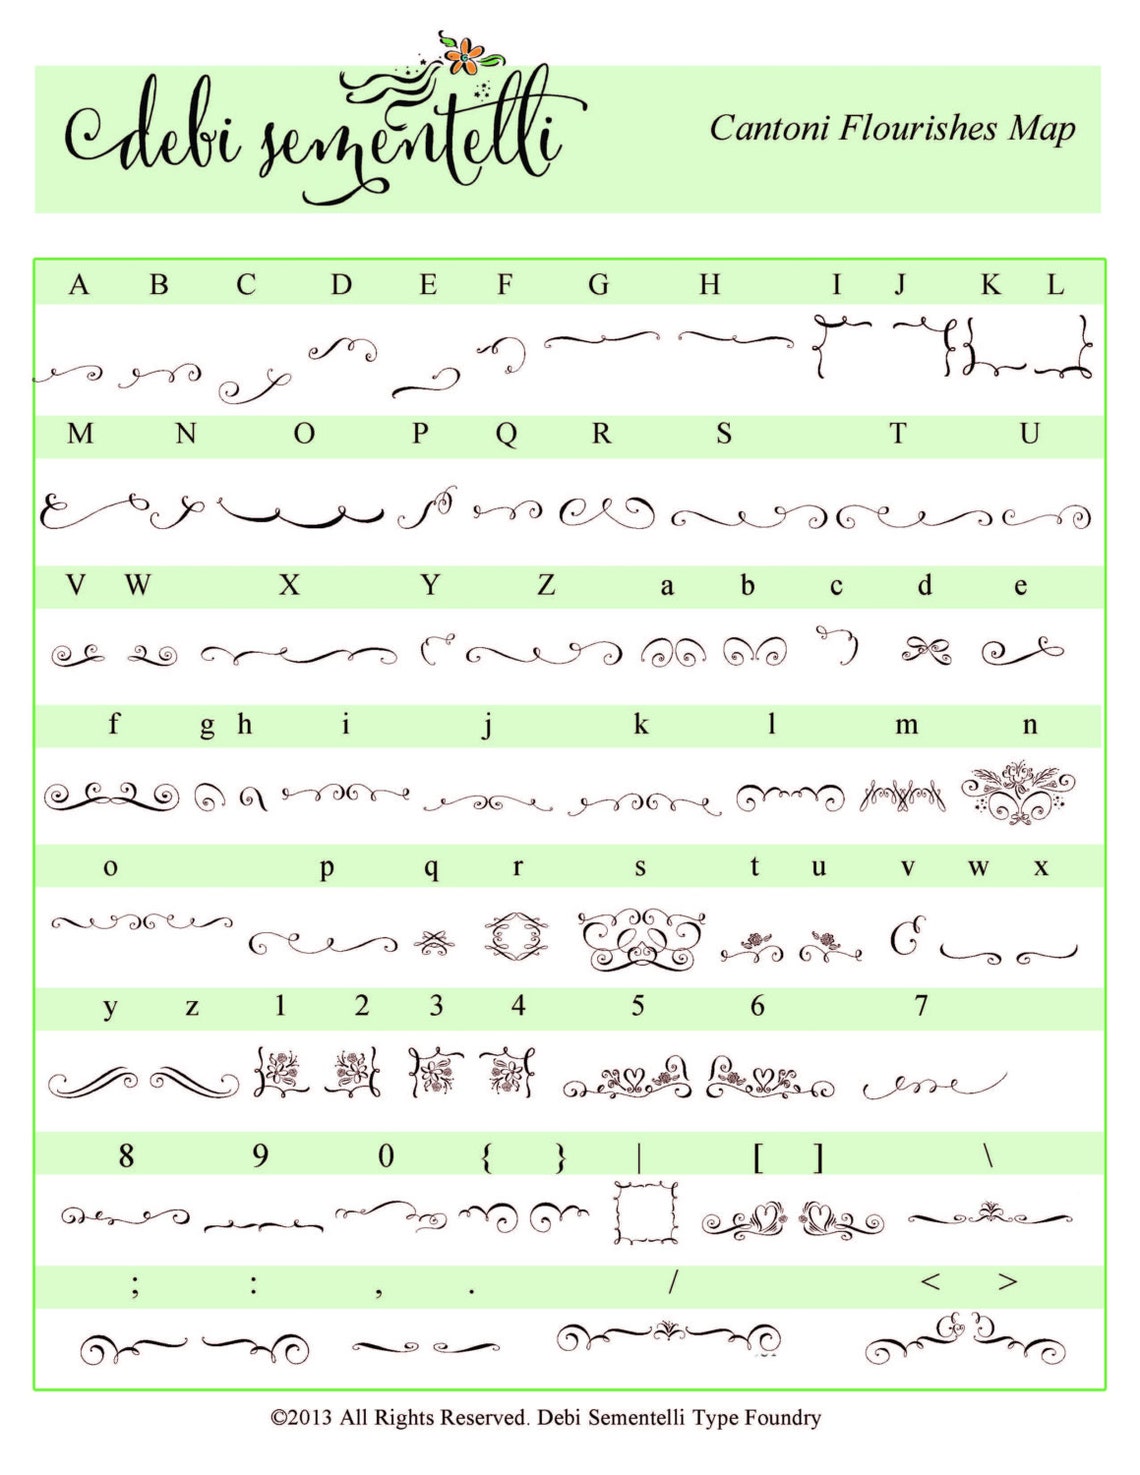 debi sementelli
Cantoni Flourishes Map
A B C D E F G H I J K L
M N O P Q R S T U
V W X Y Z a b c d e
f g h i j k l m n
o p q r s t u v w x
y z 1 2 3 4 5 6 7
8 9 0 { } | [ ] \
; : , . / < >
©2013 All Rights Reserved. Debi Sementelli Type Foundry